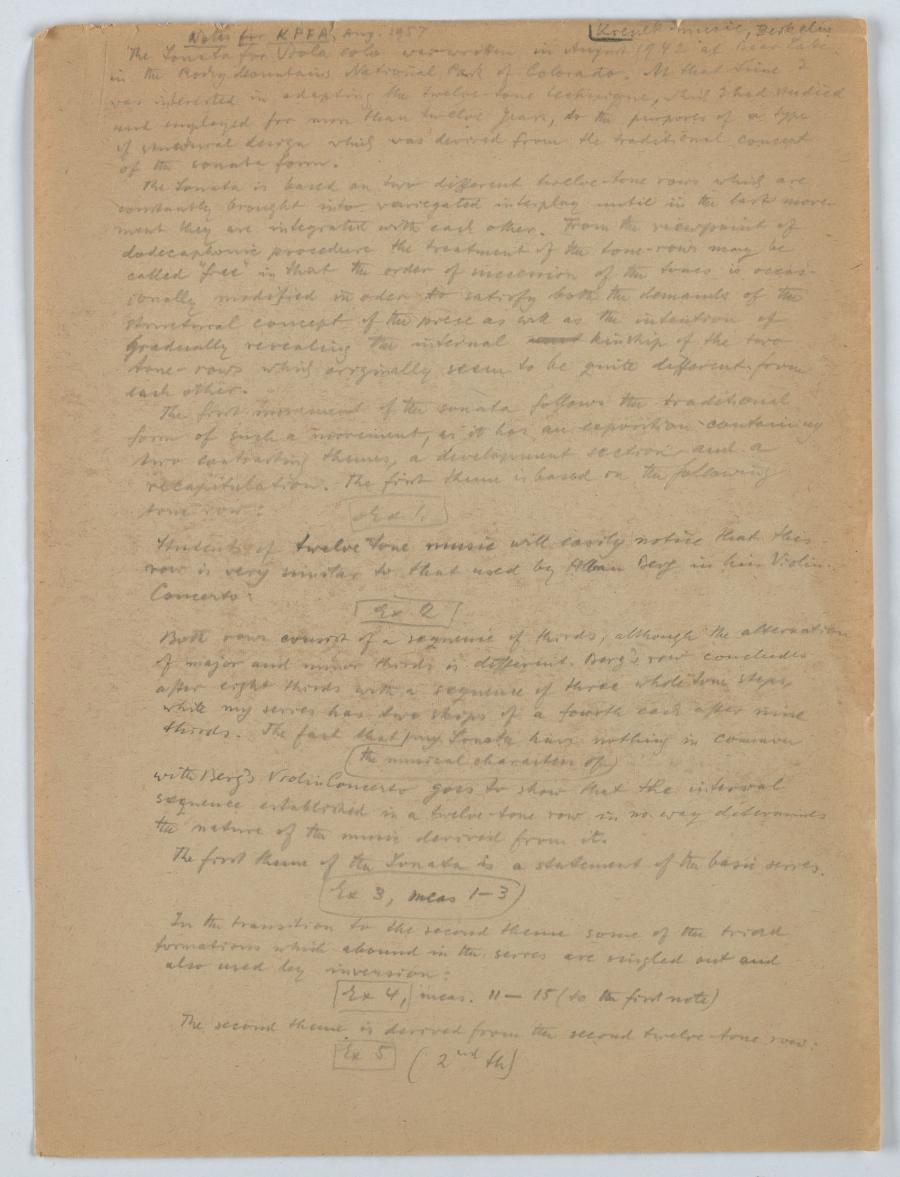 Notes for KPFA, Aug. 1957
Krenek music, Berkeley
The Sonata for Viola solo was written in August 1942 at Bear Lake
in the Rocky Mountains National Park of Colorado. At that time I
was interested in adapting the twelve-tone technique, which I had studied
and employed for more than twelve years, to the purposes of a type
of structural design which was derived from the traditional concept
of the sonata form.
The Sonata is based on two different twelve-tone rows which are
constantly brought into variegated interplay until in the last move-
ment they are integrated with each other. From the viewpoint of
dodecaphonic procedure the treatment of the tone-rows may be
called "free" in that the order of succession of the tones is occas-
ionally modified in order to satisfy both the demands of the
structural concept of the piece as well as the intention of
gradually revealing the internal kinship of the two
tone-rows which originally seem to be quite different from
each other.
The first movement of the sonata follows the traditional
form of such a movement, as it has an exposition containing
two contrasting themes, a development section, and a
recapitulation. The first theme is based on the following
tone row:
Ex 1.
Students of twelve tone music will easily notice that this
row is very similar to that used by Alban Berg in his Violin-
Concerto:
Ex 2
Both rows consist of a sequence of thirds, although the alternation
of major and minor thirds is different. Berg's row concludes
after eight thirds with a sequence of three whole tone steps,
while my series has two skips of a fourth each after nine
thirds. The fact that my Sonata have nothing in common
the musical characters of
with Berg's Violin Concerto goes to show that the interval
sequence established in a twelve-tone row in no way determines
the nature of the music derived from it.
The first theme of the Sonata is a statement of the basic series.
Ex 3, meas 1-3
In the transition to the second theme some of the triad
formations which abound in the series are singled out and
also used by inversion:
Ex 4, meas. 11 - 15 (to the first note)
The second theme is derived from the second twelve-tone row:
Ex 5 (2nd th)